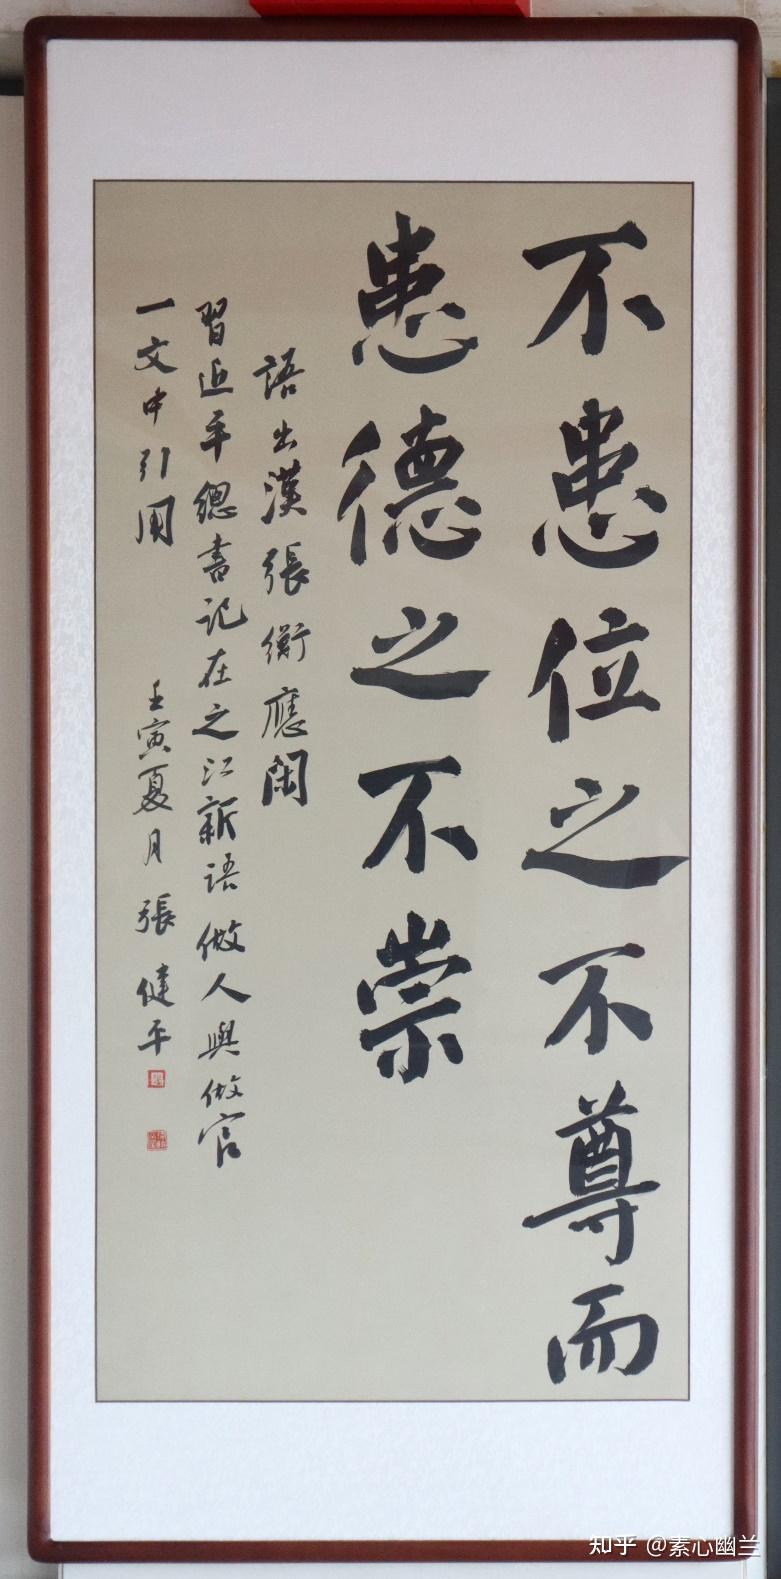 不患位之不尊而
患德之不崇
語出漢張衡應閑
習近平總書記在之江新語做人與做官
一文中引用
壬寅夏月張健平
知乎 @素心幽兰